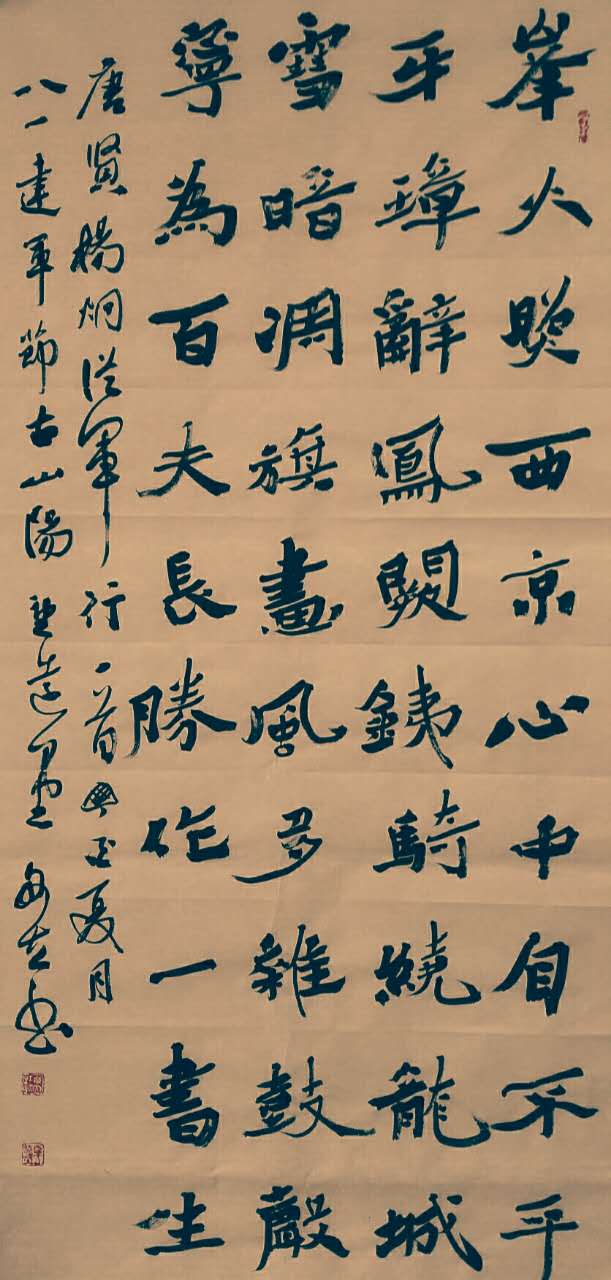 峯火照西京心中自不平
牙璋辭鳳闕銕騎繞龍城
雪暗凋旗畫風多雜鼓聲
寧為百夫長勝作一書生
唐贤楊炯從軍行一首夏月
八一建軍節古山陽